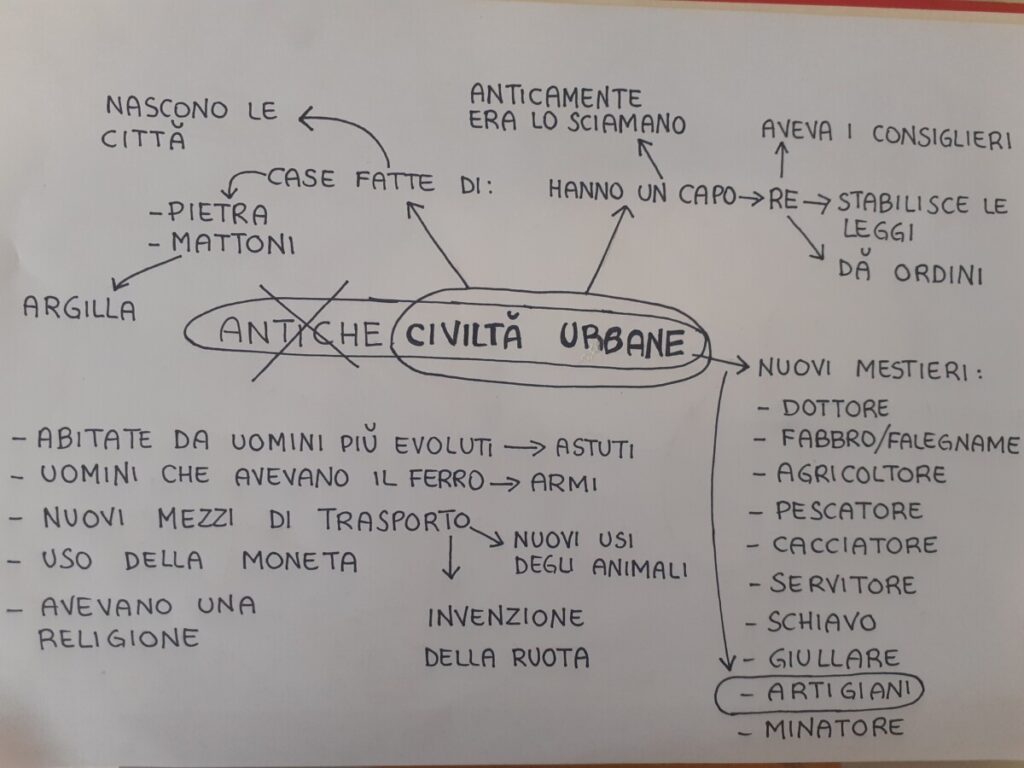 NASCONO LE
CITTÀ
CASE FATTE DI:
- PIETRA
- MATTONI
ARGILLA
ANTICAMENTE
ERA LO SCIAMANO
HANNO UN CAPO → RE → STABILISCE LE
LEGGI
AVEVA I CONSIGLIERI
DÀ ORDINI
ANTICHE CIVILTÀ URBANE
NUOVI MESTIERI:
- DOTTORE
- FABBRO/FALEGNAME
- AGRICOLTORE
- PESCATORE
- CACCIATORE
- SERVITORE
- SCHIAVO
- GIULLARE
- ARTIGIANI
- MINATORE
- ABITATE DA UOMINI PIÙ EVOLUTI → ASTUTI
- UOMINI CHE AVEVANO IL FERRO → ARMI
- NUOVI MEZZI DI TRASPORTO
NUOVI USI
DEGLI ANIMALI
INVENZIONE
DELLA RUOTA
- USO DELLA MONETA
- AVEVANO UNA
RELIGIONE